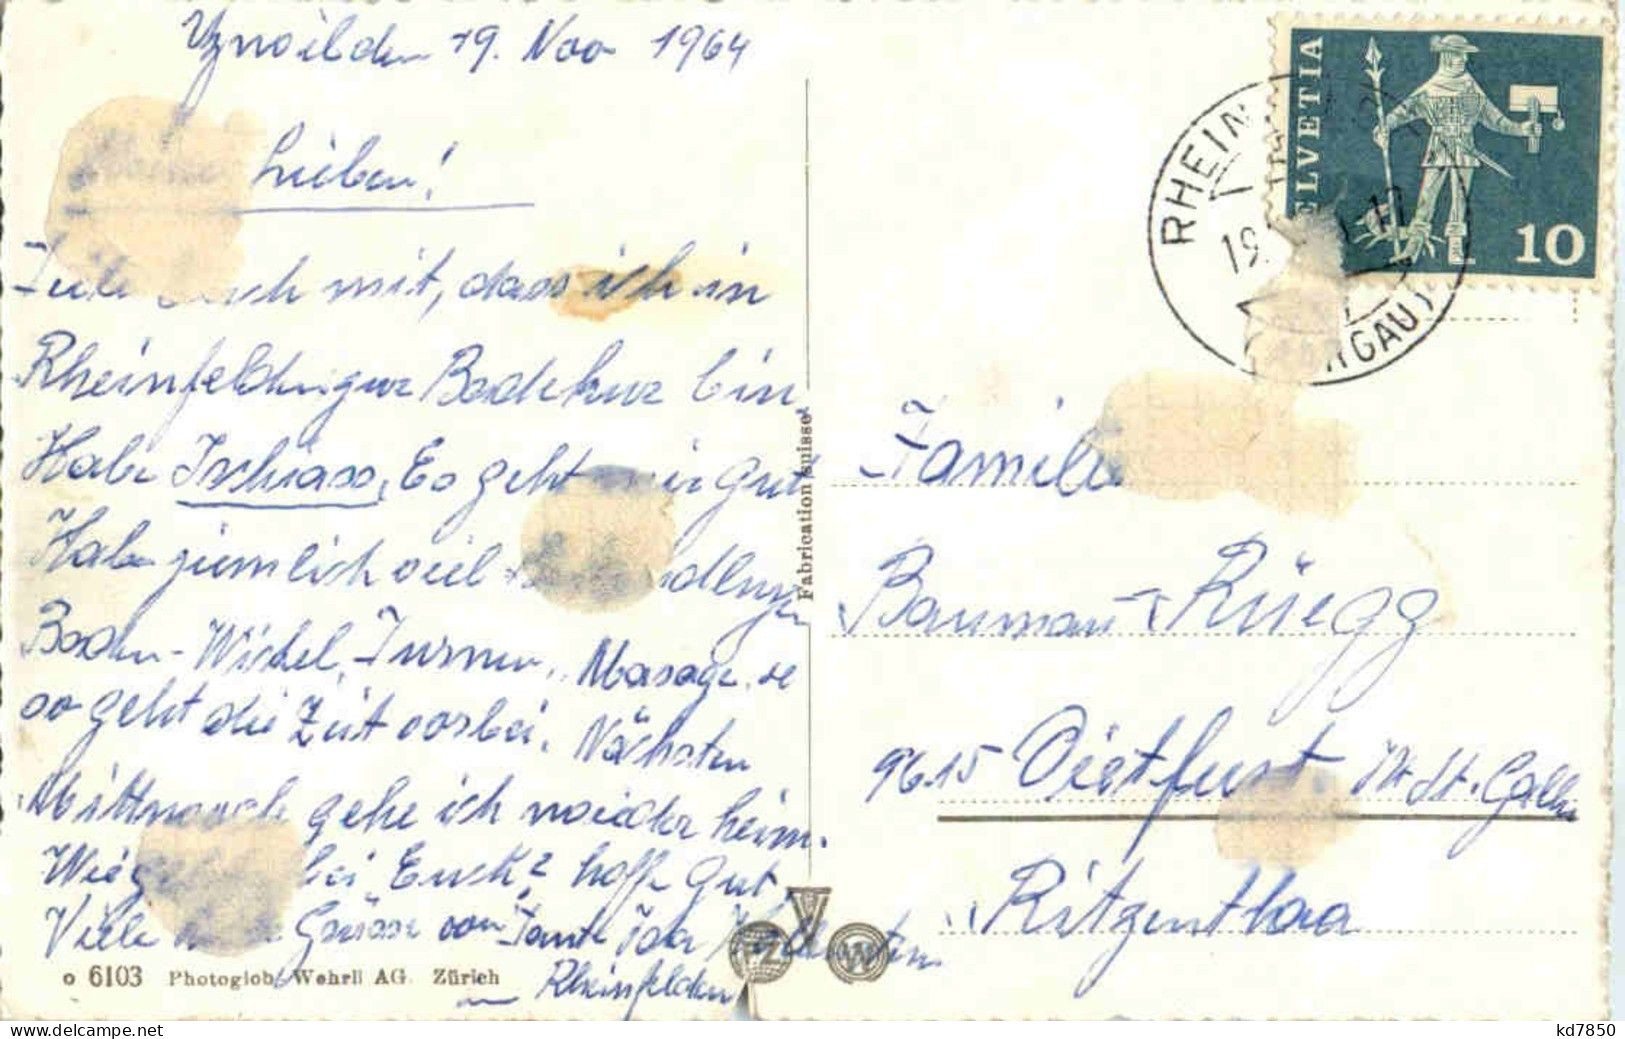 19. Nov 1964
Lieben!
mit, dass ich in
Rheinfelden zur Badekur bin
Habe Ischiass, Es geht mir gut
Habe ziemlich viel
Baden - Wickel, Turnen, Masage. se
so geht die Zeit vorbei. Nächsten
Mittwoch gehe ich wieder heim.
bei Euch? hoffe gut,
Viele Grüsse von Tante Ida
Rheinfelden
o 6103 Photoglob Wehrli AG. Zürich
Fabrication suisse
PZ W
HELVETIA
10
RHEIN
19.
(AARGAU)
Familie
Bauman - Rüegg
9615 Dietfurt. Kt St. Gallen
Ritzentaa
kd7850